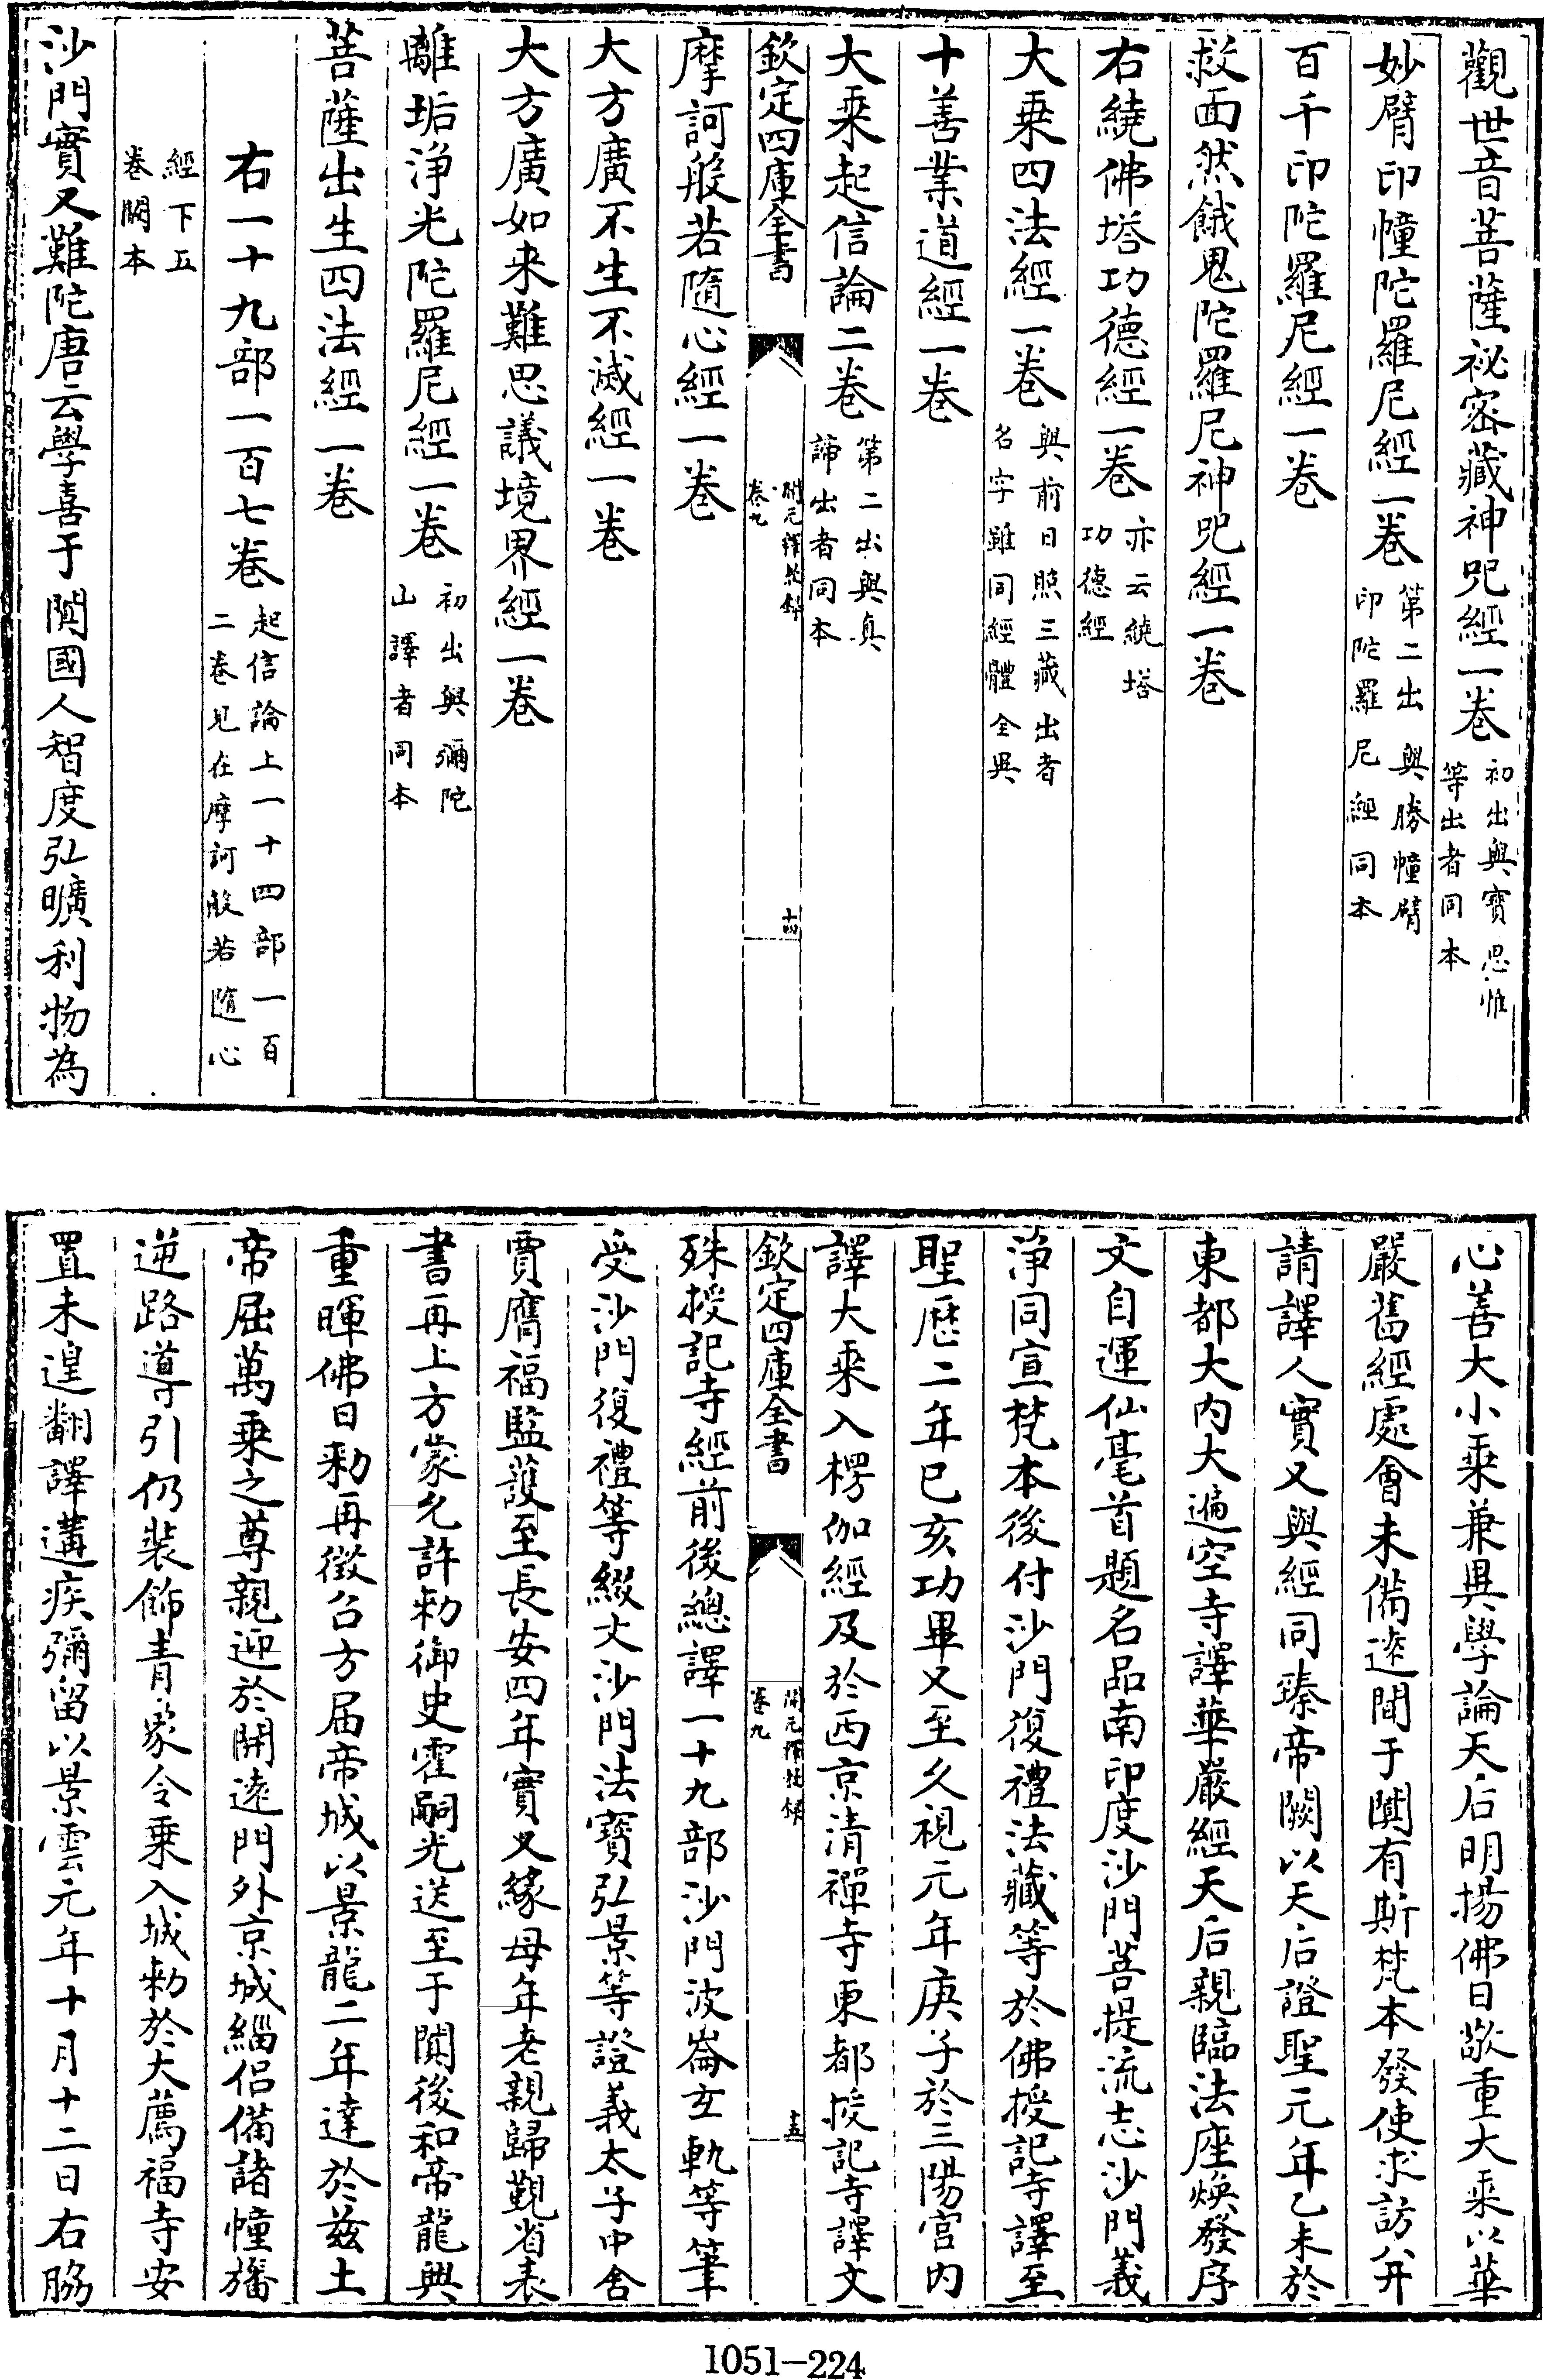 觀世音菩薩祕密藏神呪經一卷初出與寶思惟等出者同本
妙臂印幢陀羅尼經一卷第二出與勝幢臂印陀羅尼經同本
百千印陀羅尼經一卷
救面然餓鬼陀羅尼神呪經一卷
右繞佛塔功德經一卷亦云繞塔功德經
大乘四法經一卷與前日照三藏出者名字雖同經體全異
十善業道經一卷
大乘起信論二卷第二出與真諦出者同本
欽定四庫全書 開元釋教錄卷九 十四
摩訶般若隨心經一卷
大方廣不生不滅經一卷
大方廣如来難思議境界經一卷
離垢淨光陀羅尼經一卷初出與彌陀山譯者同本
菩薩出生四法經一卷
右一十九部一百七卷起信論上一十四部一百二卷見在摩訶般若隨心
經下五卷闕本
沙門實叉難陀唐云學喜于闐國人智度弘曠利物為
心善大小乘兼異學論天后明揚佛日敬重大乘以華
嚴舊經處會未備逺聞于闐有斯梵本發使求訪并
請譯人實叉與經同臻帝闕以天后證聖元年乙未於
東都大内大遍空寺譯華嚴經天后親臨法座煥發序
文自運仙毫首題名品南印度沙門菩提流志沙門義
淨同宣梵本後付沙門復禮法藏等於佛授記寺譯至
聖厯二年己亥功畢又至久視元年庚子於三陽宫内
譯大乘入楞伽經及於西京清禪寺東都授記寺譯文
欽定四庫全書 開元釋教錄卷九 十五
殊授記寺經前後總譯一十九部沙門波崙玄軌等筆
受沙門復禮等綴文沙門法寶弘景等證義太子中舍
賈膺福監護至長安四年實叉緣母年老親歸覲省表
書再上方蒙允許勅御史霍嗣光送至于闐後和帝龍興
重暉佛日勅再徵召方届帝城以景龍二年達於兹土
帝屈萬乘之尊親迎於開逺門外京城緇侶備諸幢旛
逆路導引仍裝飾青象令乘入城勅於大薦福寺安
置未遑翻譯遘疾彌留以景雲元年十月十二日右脇
1051-224